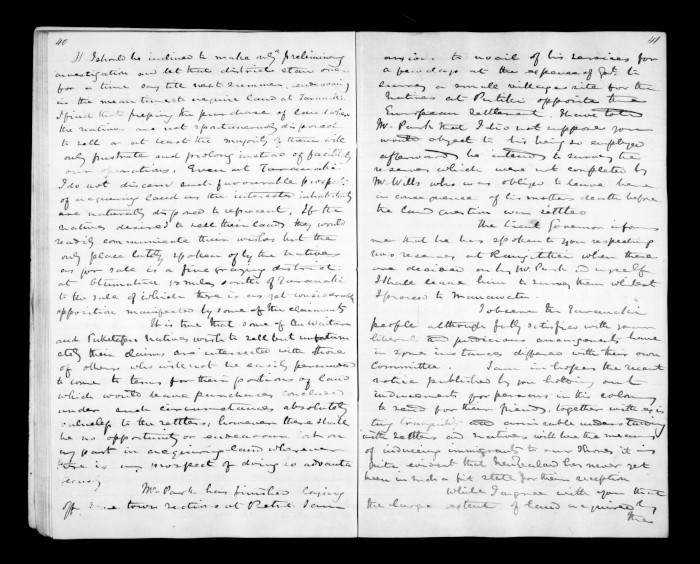 40
I should be inclined to make only preliminary
investigation and let that district stand over
for a time say till next summer, endeavouring
in the mean time to acquire land at Taranaki.
I find that pressing the purchase of land when
the natives are not spontaneously disposed
to sell or at least the majority of them will
only frustrate and prolong instead of facilitating
our operations. Even at Taranaki
I do not discern such favourable prospects
of acquiring land as the interested inhabitants
are naturally disposed to represent. If the
natives desired to sell their lands they would
readily communicate their wishes but the
only place lately spoken of by the natives
as for sale is a fine grazing district
at Otumatua 50 miles south of Taranaki
to the sale of which there is as yet considerable
opposition manifested by some of the claimants
It is true that some of the Waitara
and Puketapu Natives wish to sell but unfortun
ately their claims are intersected with those
of others who will not be easily persuaded
to come to terms for their portions of land
which would leave purchases concluded
under such circumstances absolutely
valueless to the settlers, however there shall
be no opportunity or endeavour lost on
my part in acquiring land wherever
there is any prospect of doing so advanta
geously
Mr Park has finished laying
off some town sections at Petre. I am
41
anxious to avail of his services for
a few days at the expense of Govt to
survey a small village site for the
Natives at Putiki opposite the
European Settlement. I have told
Mr Park that I did not suppose you
would object to his being so employed
afterwards he intends to survey the
reserves which were not completed by
Mr Wills who was obliged to leave here
in consequence of his mothers death before
the land question was settled
The Lieut Governor informs
me that he has spoken to you respecting
two reserves at Rangitikei when these
are decided on by Mr Park and myself
I shall leave him to survey them whilst
I proceed to Manawatu
I observe the Taranaki
people although fully satisfied with your
liberal and judicious arrangements have
in some instances differed with their own
Committee. I am in hopes the recent
notice published by you holding out
inducements for persons in the colony
to send for their friends, together with exis
ting tranquility and amicable understanding
with settlers and natives will be the means
of inducing immigrants to our Shores, it is
quite evident that New Zealand has never yet
been in such a fit state for their reception
While I agree with you that
the large extent of land acquired by
the